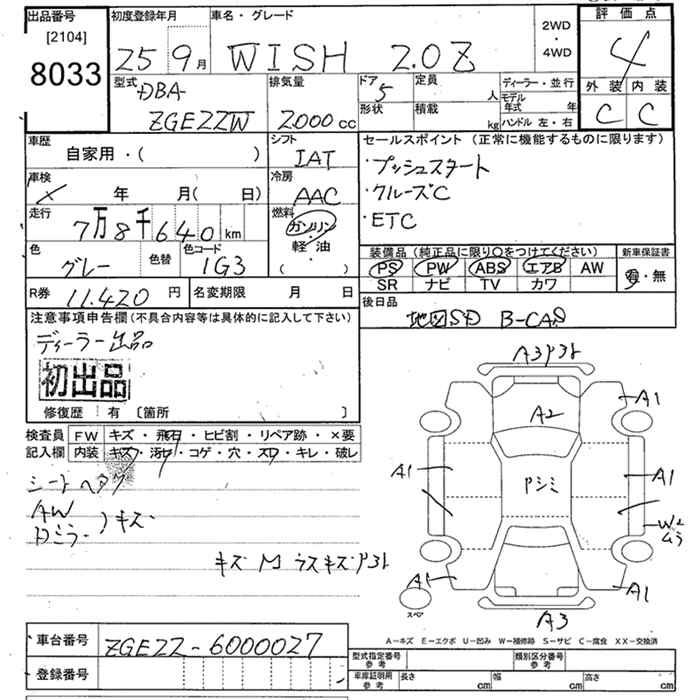 出品番号 初度登録年月 車名・グレード 2WD ・ 4WD 評価点
[2104] 8033 25年 9月 WISH 2.0Z 4
外装 内装
C C
型式 DBA- ZGE22W 排気量 2000cc ドア 5 定員 人 ディーラー・並行
形状 積載 kg モデル年式 年
ハンドル 左・右
車歴 自家用・( ) シフト IAT セールスポイント (正常に機能するものに限ります)
・プッシュスタート
車検 × 年 月( 日) 冷房 AAC ・クルーズC
走行 7万8千640km 燃料 ガソリン・軽・油 ( ) ・ETC
色 グレー 色替 色コード 1G3 装備品 (純正品に限り○をつけてください) 新車保証書
PS PW ABS エアB AW 有・無
SR ナビ TV カワ
R券 11.420円 名変期限 月 日 後日品
地図SD B-CAS
注意事項申告欄 (不具合内容等は具体的に記入して下さい)
ディーラー出品
初出品
修復歴 有 〔箇所 〕
検査員記入欄 FW キズ・飛石・ヒビ割・リペア跡・×要
内装 キズ・汚れ・コゲ・穴・スレ・キレ・破レ
AW
Dミラー )キズ
A2
A1
A1
A1
A1
A1
A3
スペア
A-キズ E-エクボ U-凹み W-補修跡 S-サビ C-腐食 XX-交換済
車台番号 ZGE22-6000027
登録番号
型式指定番号 参考 類別区分番号 参考
車庫証明用 参考 長さ cm 幅 cm 高さ cm